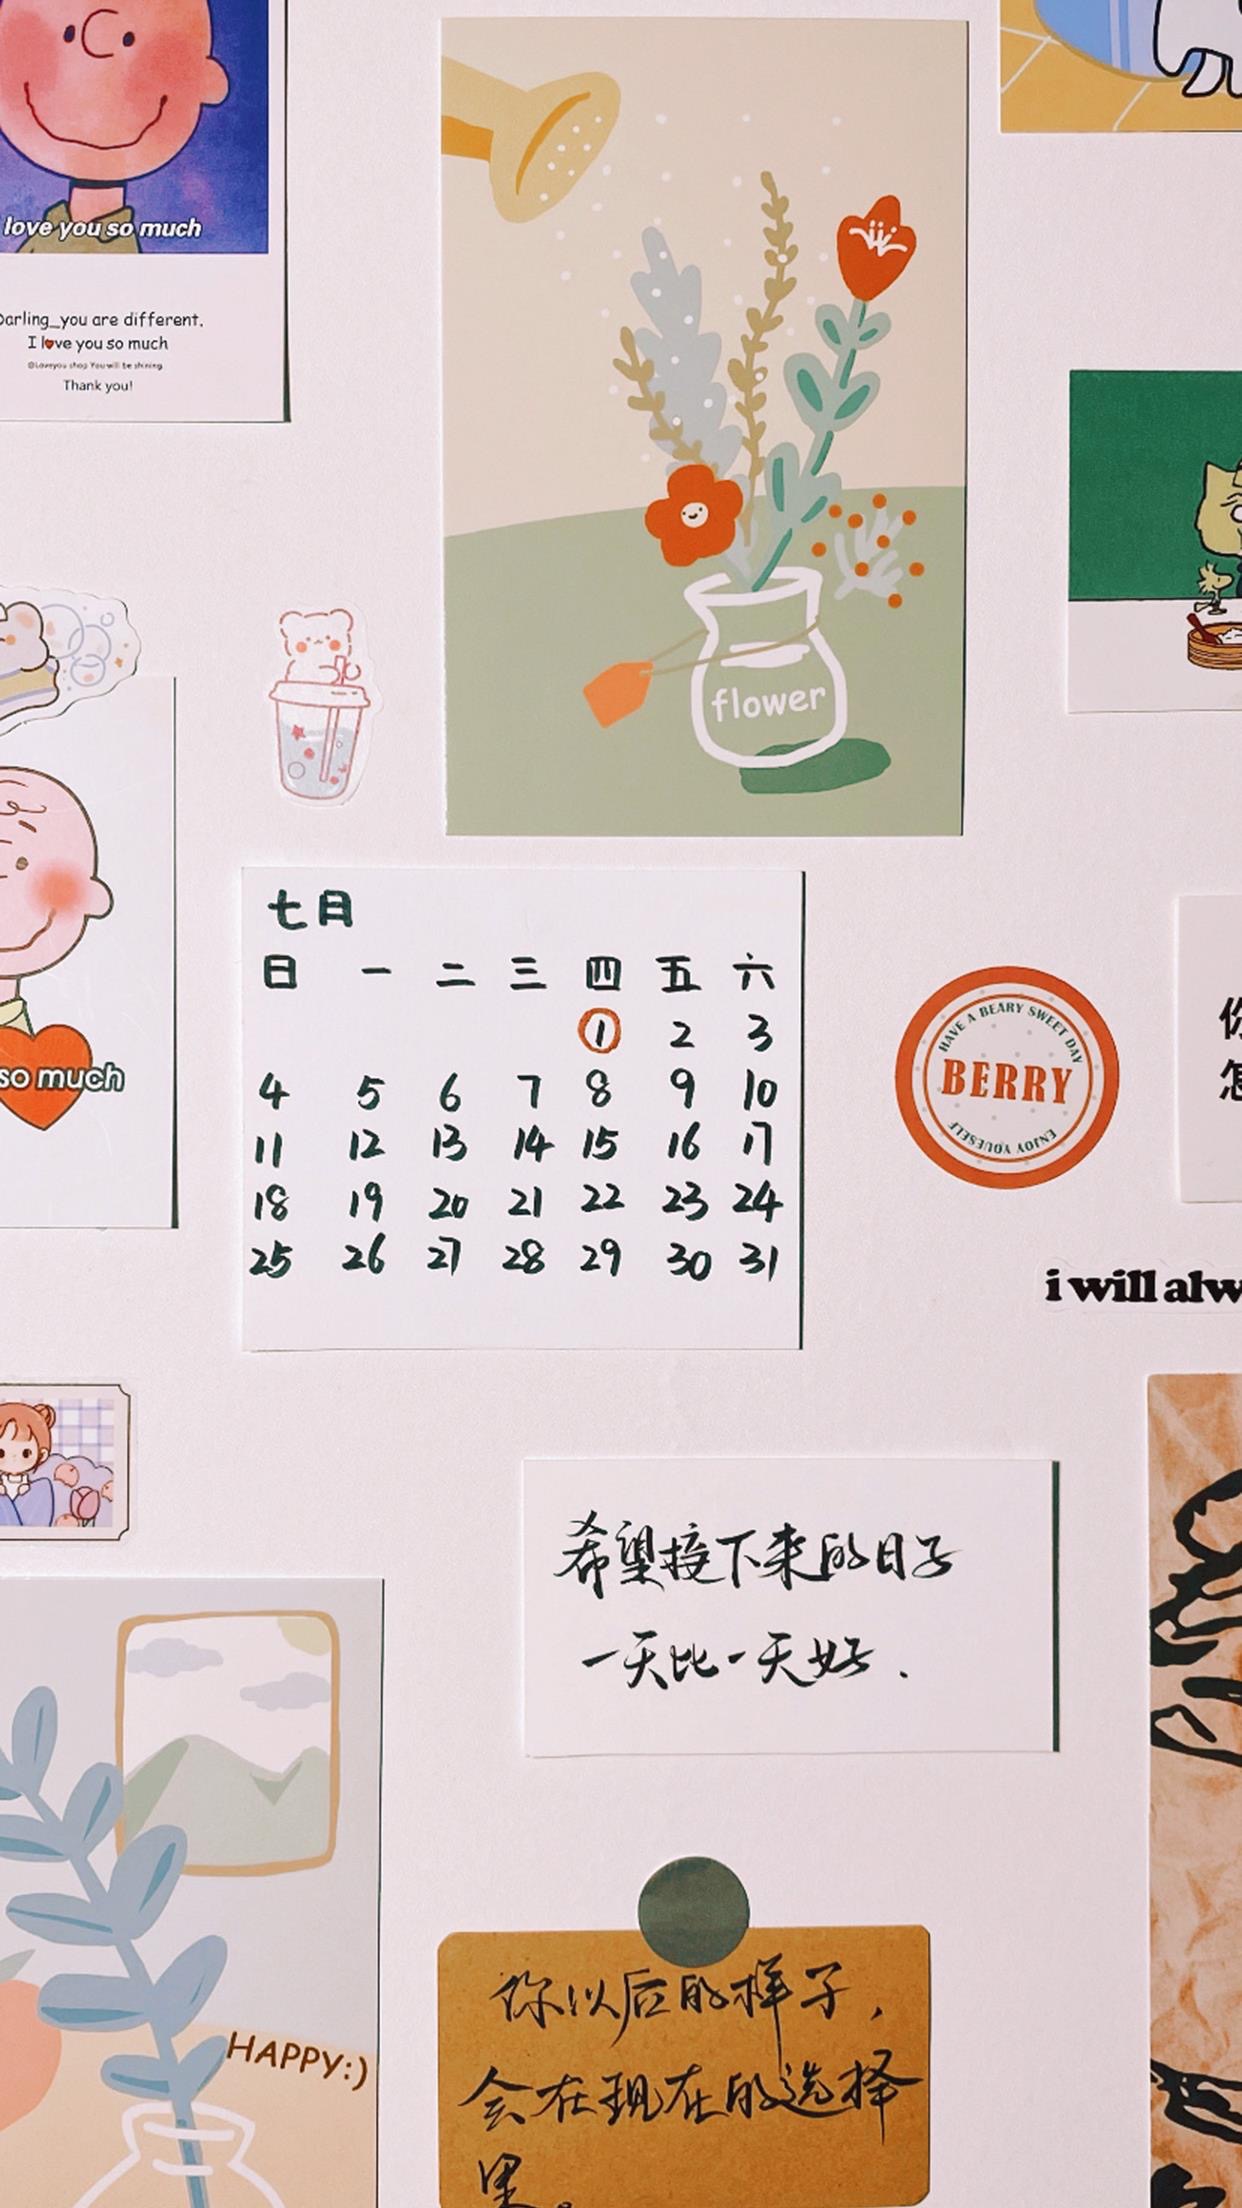 love you so much
Darling_you are different.
I love you so much
@Loveyou shop You will be shining.
Thank you!
flower
so much
七月
日 一 二 三 四 五 六
1 2 3
4 5 6 7 8 9 10
11 12 13 14 15 16 17
18 19 20 21 22 23 24
25 26 27 28 29 30 31
HAVE A BEARY SWEET DAY
BERRY
ENJOY YOUESELF
你
怎
i will alw
希望接下来的日子
一天比一天好.
HAPPY:)
你以后的样子,
会在现在的选择
里。